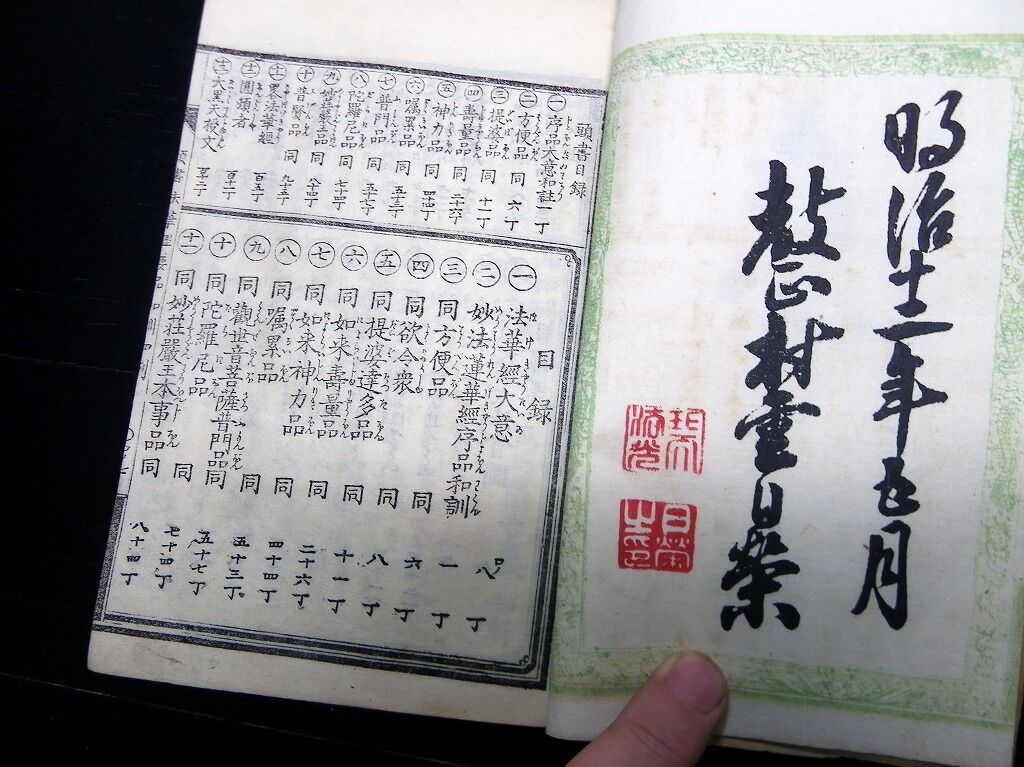 明治十二年五月
村雲日榮
頭書目録
一 序品大意和註 一丁
二 方便品 同 六丁
三 提婆品 同 十一丁
四 壽量品 同 二十六丁
五 神力品 同 四十四丁
六 嘱累品 同 五十三丁
七 普門品 同 五十七丁
八 陀羅尼品 同 七十四丁
九 妙荘嚴王品 同 八十四丁
十 普賢品 同 九十五丁
十一 略法華經 百五丁
十二 圓頓者 百十丁
十三 大黒天授文
目録
一 法華經大意 口ノ八丁
二 妙法蓮華經序品和訓 一丁
三 同方便品 同 六丁
四 同欲令衆 同 八丁
五 同提婆達多品 同 十一丁
六 同如来壽量品 同 二十六丁
七 同如来神力品 同 四十四丁
八 同嘱累品 同 五十三丁
九 同觀世音菩薩普門品 同 五十七丁
十 同陀羅尼品 同 七十四丁
十一 同妙荘嚴王本事品 同 八十四丁